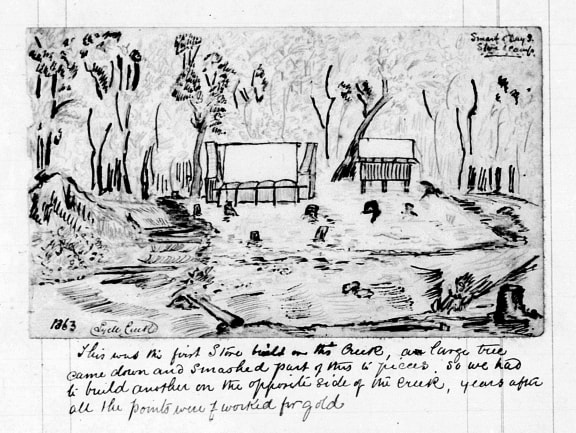 Smart & Day's
Store & Camp
1863 Lyell Creek
This was the first Store built on this Creek, a large tree
came down and smashed part of this to pieces. So we had
to build another on the opposite side of the Creek, years after
all the points were worked for gold